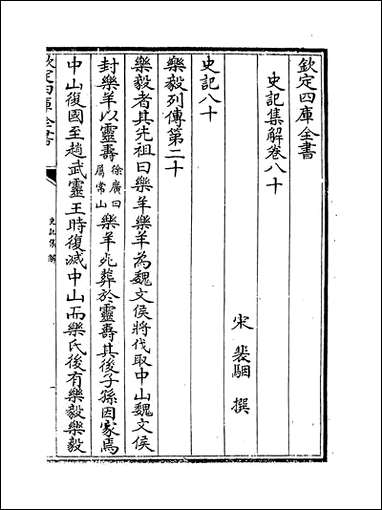 欽定四庫全書
史記集解卷八十
宋 裴駰 撰
史記八十
樂毅列傳第二十
樂毅者其先祖曰樂羊樂羊為魏文侯將伐取中山魏文侯
封樂羊以靈壽徐廣曰屬常山樂羊死葬於靈壽其後子孫因家焉
中山復國至趙武靈王時復滅中山而樂氏後有樂毅樂毅
欽定四庫全書
史記集解
一